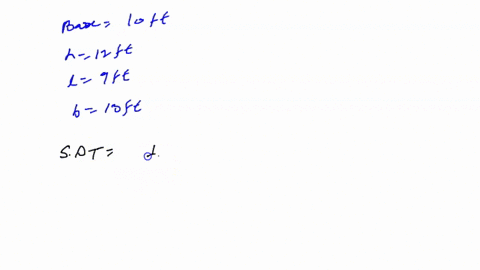 Base = 10 ft
h = 12 ft
l = 9 ft
b = 10 ft
S.A T =